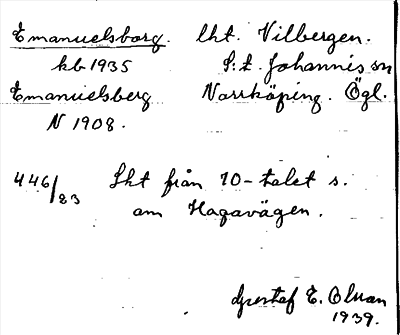 Emanuelsborg. lht. Vilbergen.
kb 1935 S:t. Johannis sn
Emanuelsberg Norrköping. Ögl.
N 1908.
446/23 Lht från 70-talet s.
om Hagavägen.
Gustaf E. Olsson
1939.